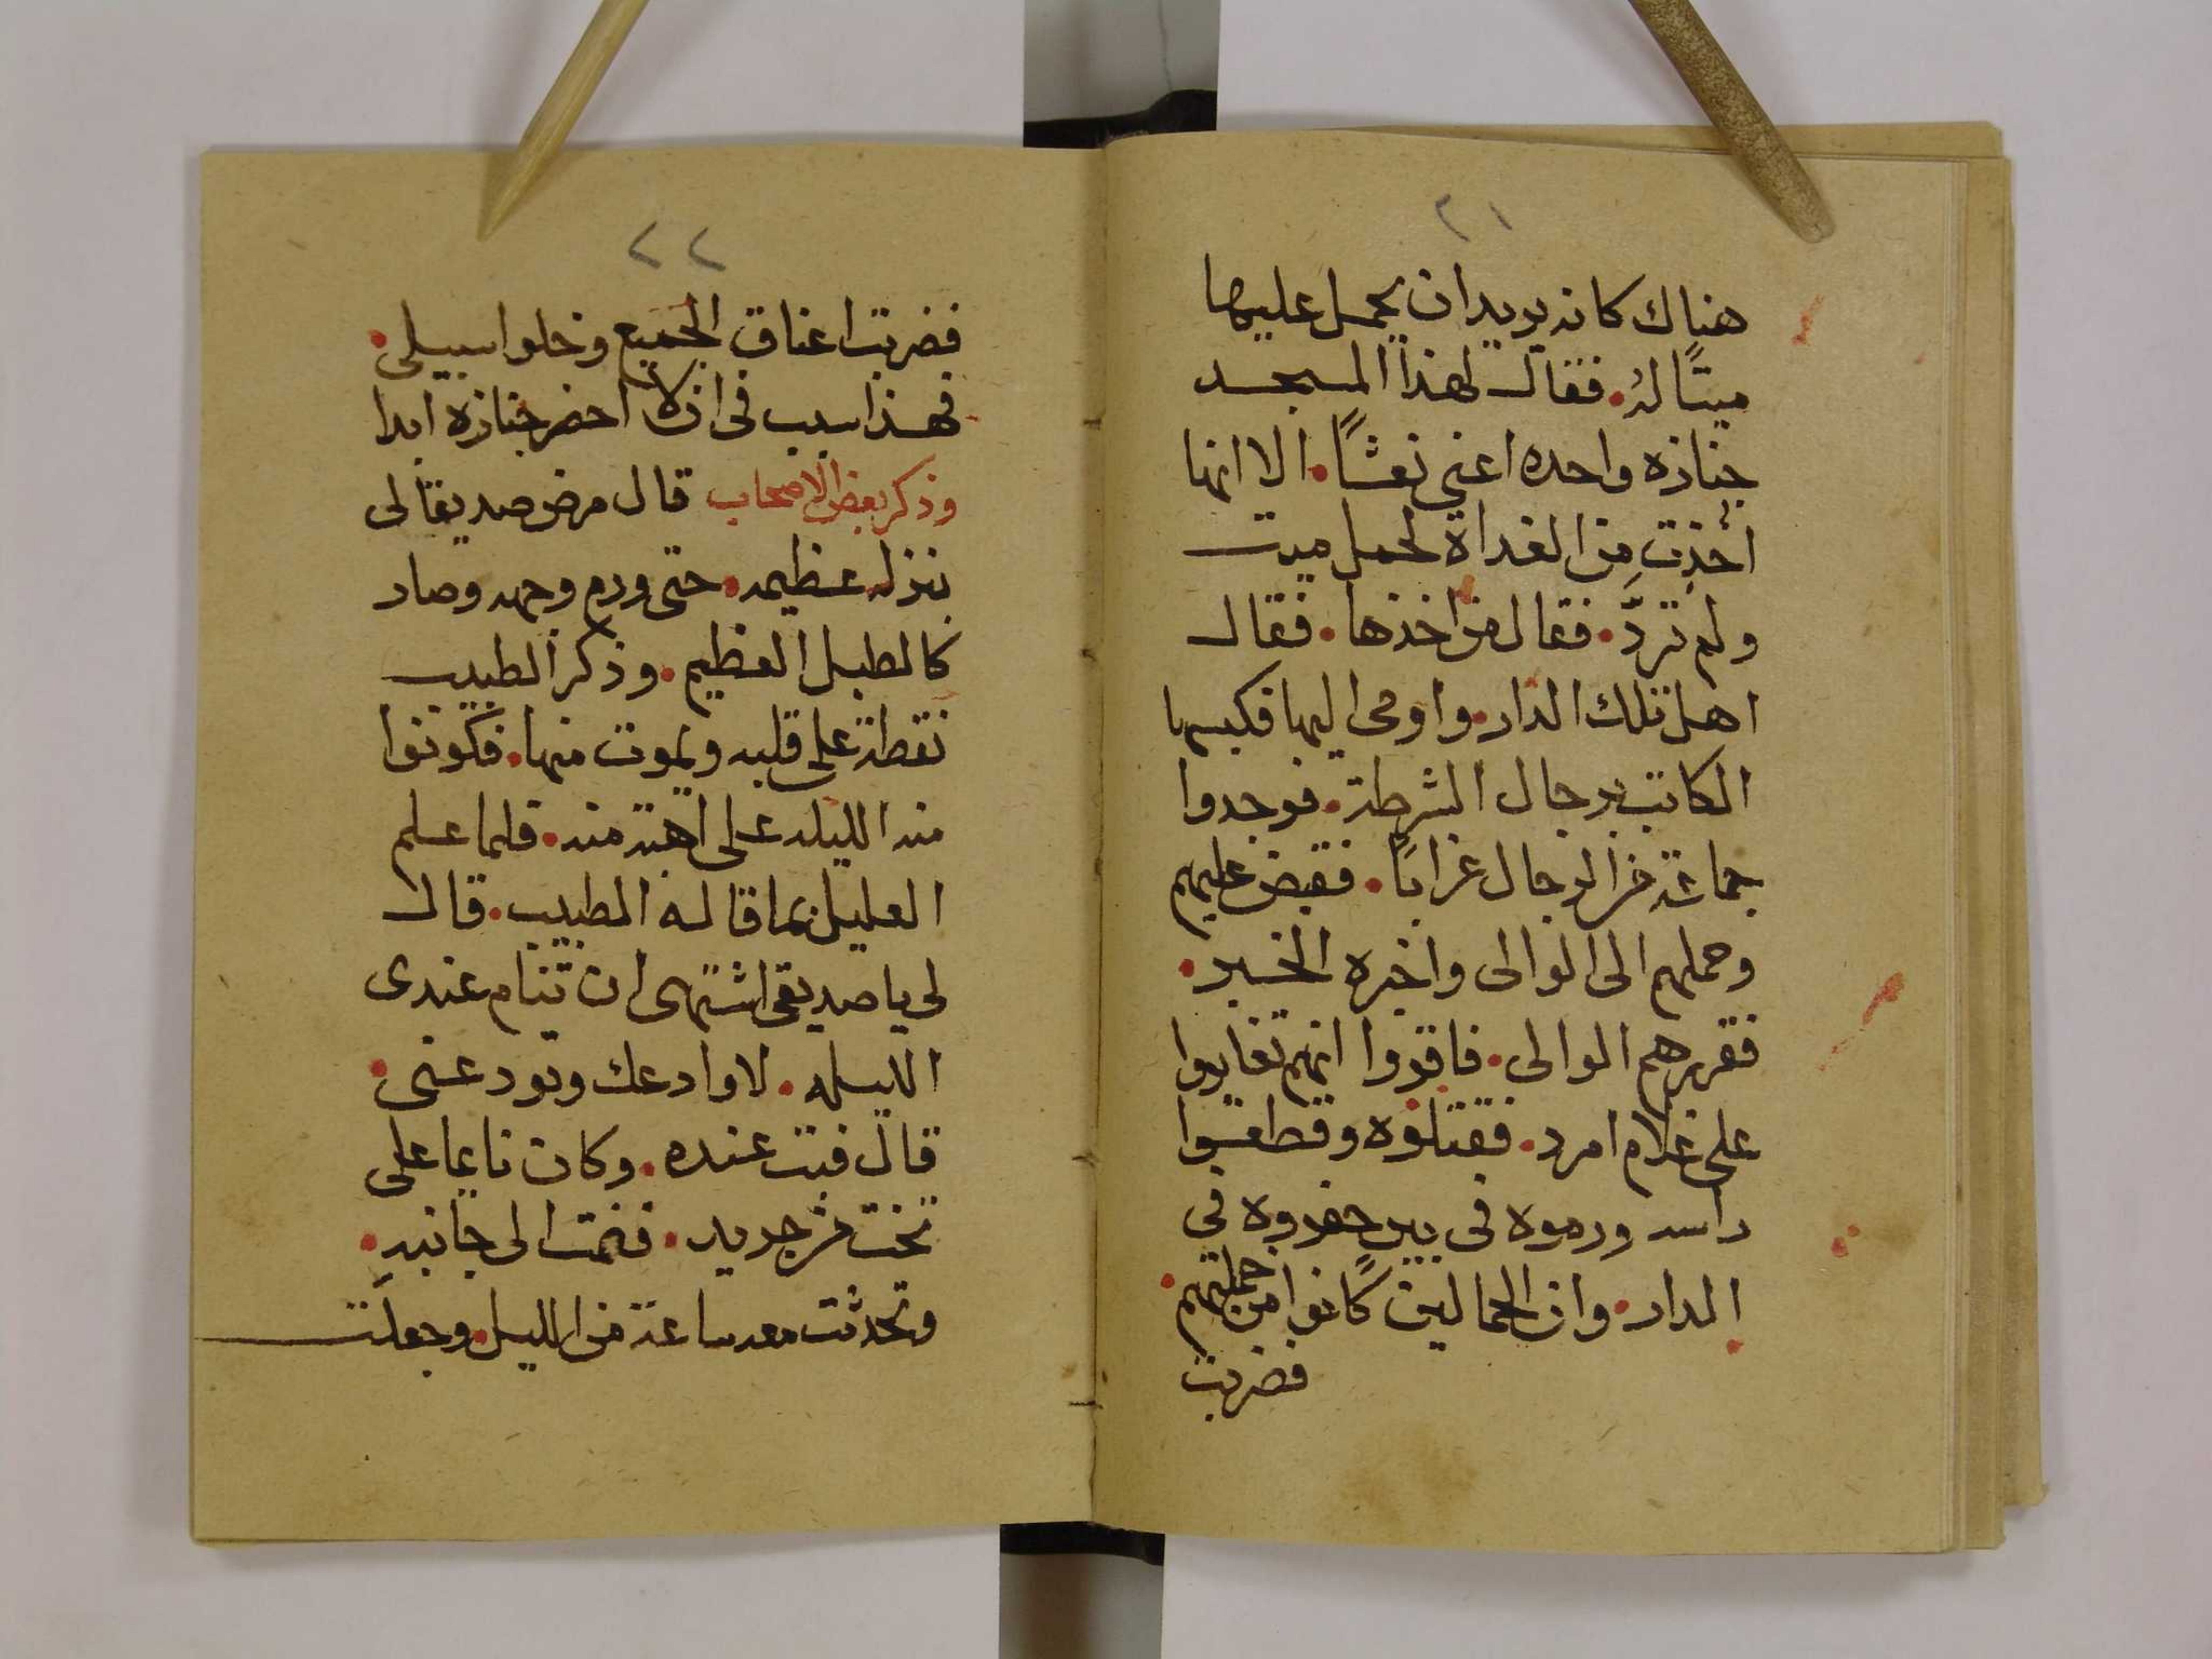 ٢١
هناك كانه يريد ان يحمل عليها
ميتًا له. فقال لهذا المسجد
جنازه واحده اعني نعشًا. الا انها
أُخِذت مِن الغداة لحمل ميت
ولم تردَّ. فقال من اخذها. فقال
اهل تلك الدار. واومى اليها فكبسها
الكاتب برجال الشرطة. فوجدوا
جماعة من الرجال عزابًا. فقبض عليهم
وحملهم الى الوالى واخبره الخبر.
فقررهم الوالى. فاقروا انهم تغايروا
على غلام امرد. فقتلوه وقطعوا
راسه ورموه في بير حفروه في
الدار. وان الحمالين كانوا من جملتهم.
فضربت
٢٢
فضربت اعناق الجميع وخلوا سبيلى.
فهذا سبب فى ان لا احضر جنازة ابدا
وذكر بعض الاصحاب قال مرض صديقا لى
بنزله عظيمه. حتى ورم وجهه وصار
كالطبل العظيم. وذكر الطبيب
نقطة على قلبه ويموت منها. فكونوا
منه الليله على اهبة منه. فلما علم
العليل بما قاله الطبيب. قال
لى يا صديقى اشتهى ان تنام عندى
الليله. لاوادعك وتودعنى.
قال فبت عنده. وكان نايما على
تخت من جديد. فنمت الى جانبه.
وتحدثت معه ساعة من الليل. وجعلت